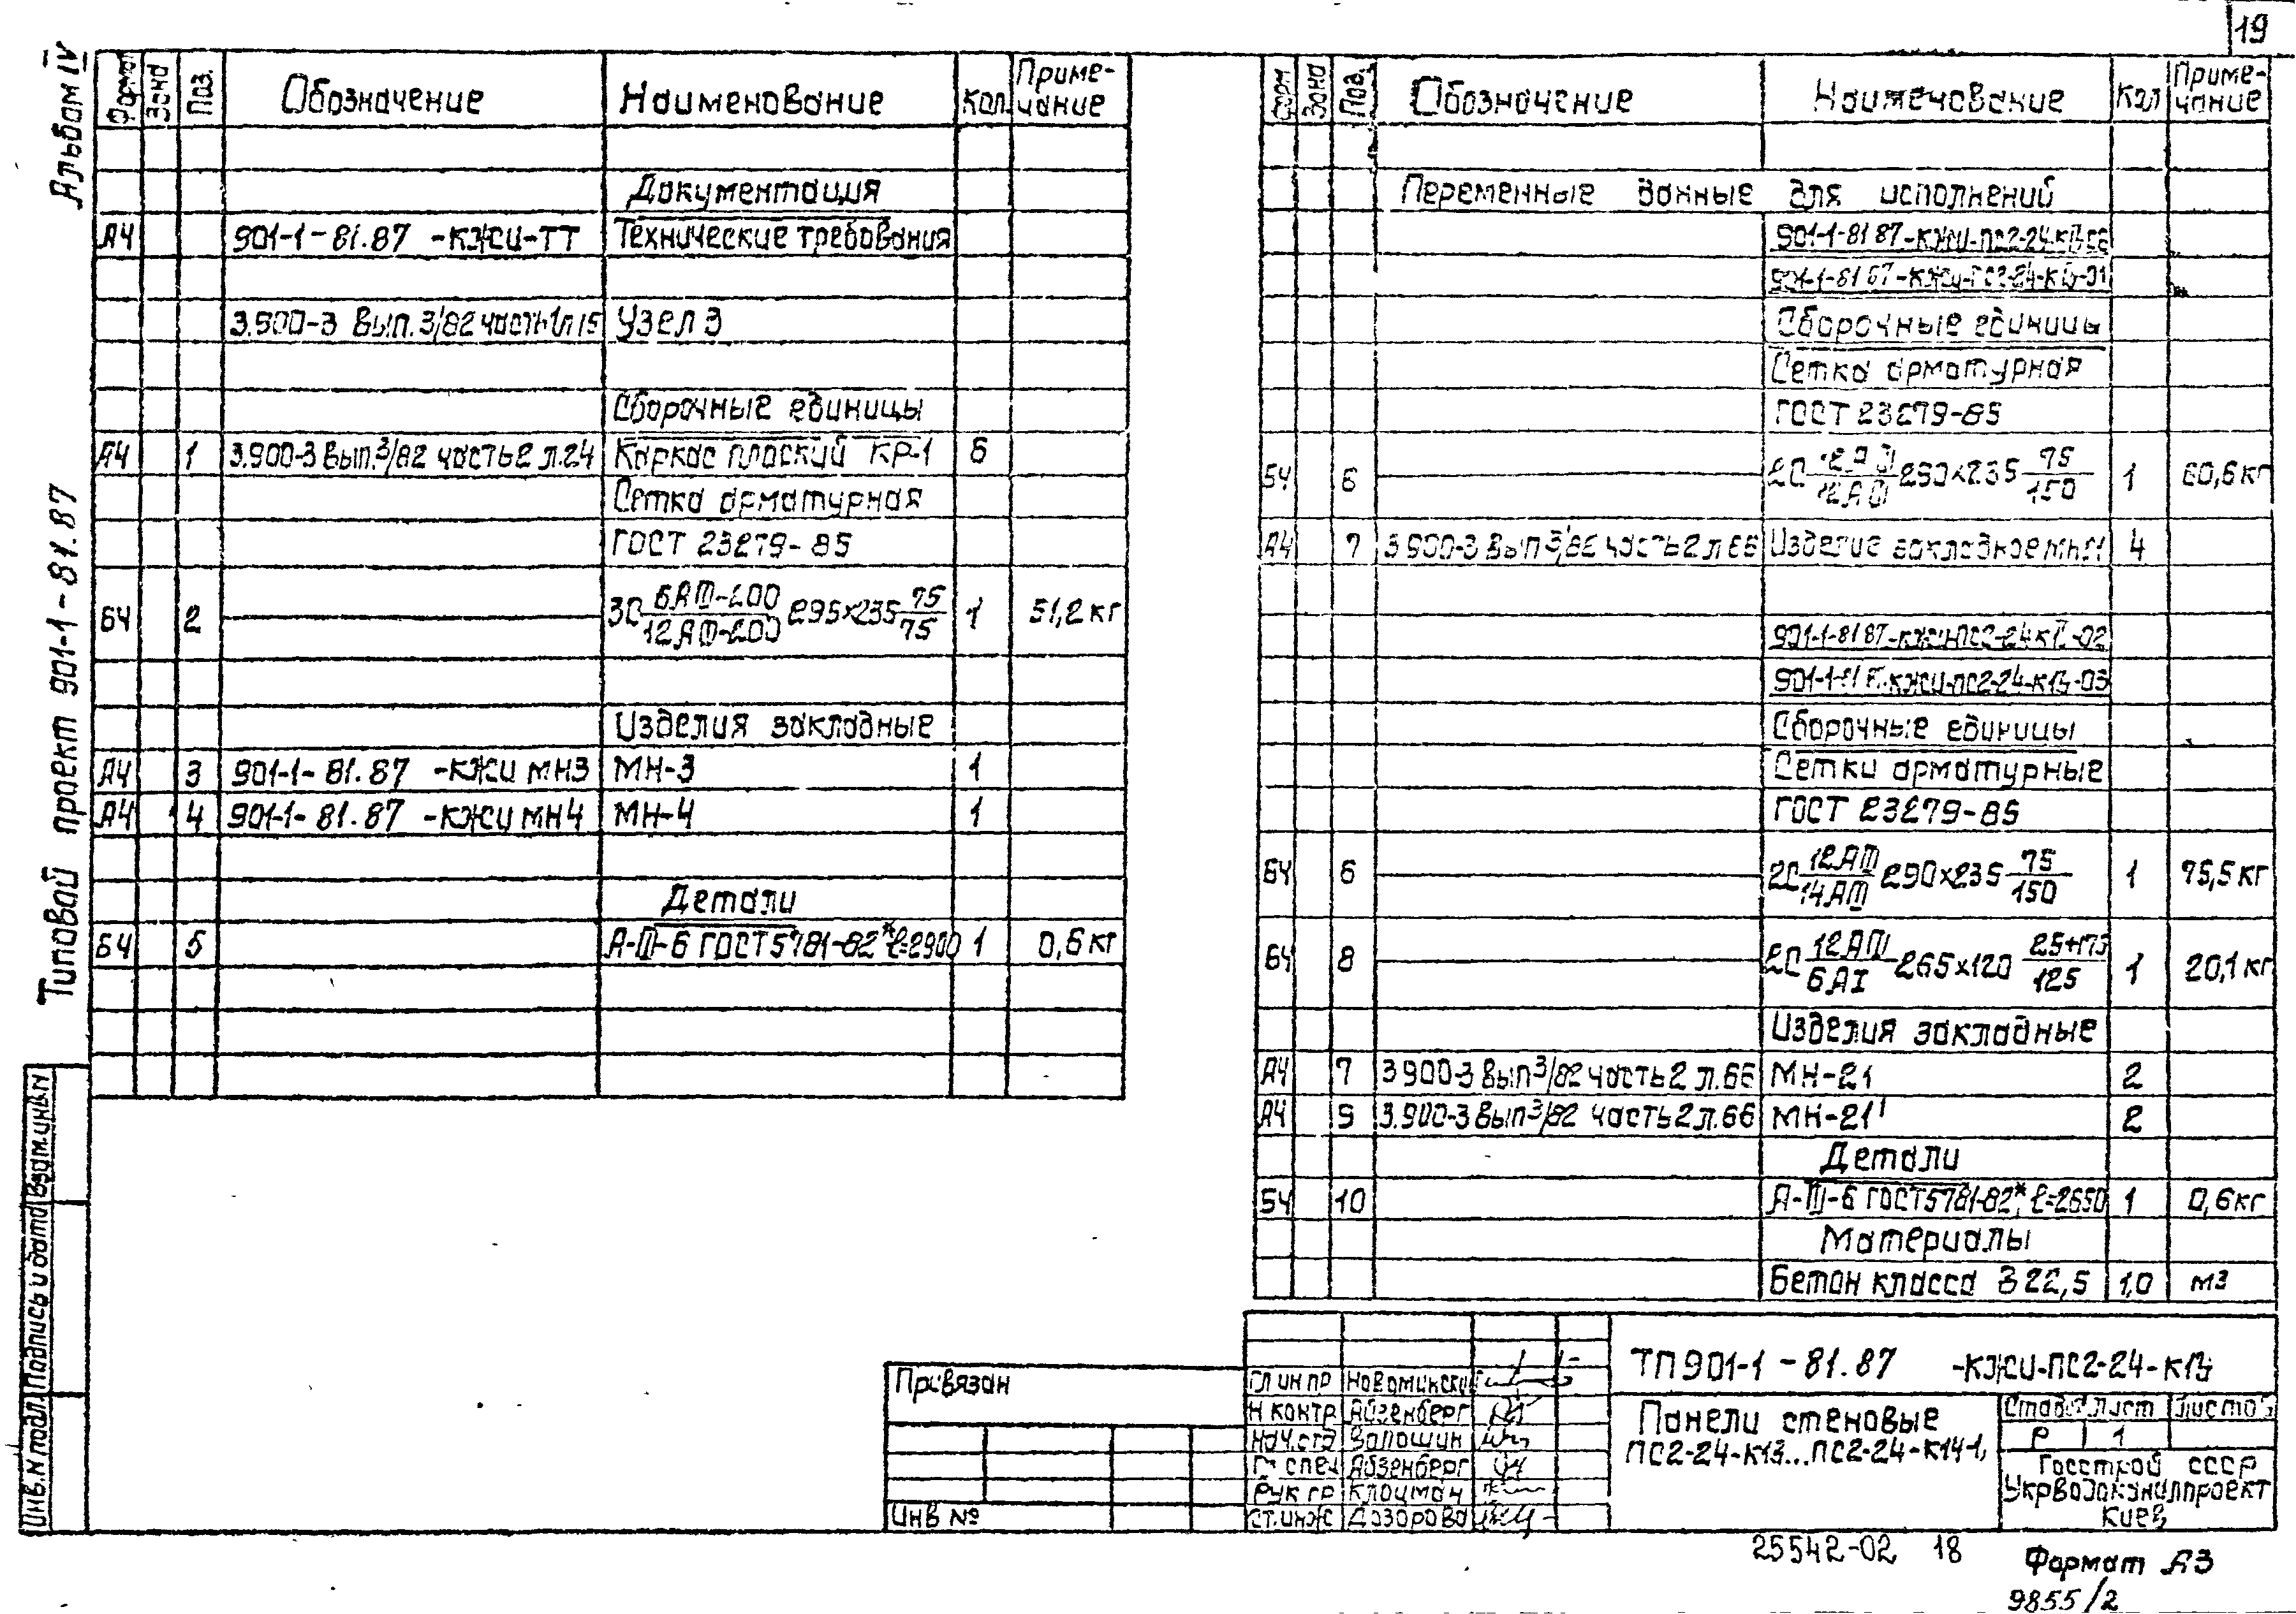 19
Альбом IV
Типовой проект 901-1-81.87
Инв.N подл. Подпись и дата Взам.инв.N
Формат Зона Поз. Обозначение Наименование Кол. Приме-
чание
Документация
А4 901-1-81.87 -КЖИ-ТТ Технические требования
3.900-3 Вып.3/82 часть1л15 Узел 3
Сборочные единицы
А4 1 3.900-3 Вып.3/82 часть2 л.24 Каркас плоский КР-1 6
Сетка арматурная
ГОСТ 23279-85
БЧ 2 3С 6АIII-200/12АIII-200 295×235 75/75 1 51,2 кг
Изделия закладные
А4 3 901-1-81.87 -КЖИ МН3 МН-3 1
А4 4 901-1-81.87 -КЖИ МН4 МН-4 1
Детали
БЧ 5 А-III-6 ГОСТ5781-82* ℓ=2900 1 0,6 кг
Форм Зона Поз. Обозначение Наименование Кол Приме-
чание
Переменные данные для исполнений
901-1-81 87-КЖИ-ПС2-24-К13
901-1-81 87-КЖИ-ПС2-24-К13-01
Сборочные единицы
Сетка арматурная
ГОСТ 23279-85
БЧ 6 2С 12АIII/12АIII 290×235 75/150 1 60,6 кг
А4 7 3 900-3 Вып 3/82 часть2 л 66 Изделие закладное МН21 4
901-1-81 87-КЖИ-ПС2-24-К13-02
901-1-81 87-КЖИ-ПС2-24-К13-03
Сборочные единицы
Сетки арматурные
ГОСТ 23279-85
БЧ 6 2С 12АIII/14АIII 290×235 75/150 1 75,5 кг
БЧ 8 2С 12АIII/6АI 265×120 25+173/125 1 20,1 кг
Изделия закладные
А4 7 3 900-3 Вып 3/82 часть2 л.66 МН-21 2
А4 9 3.900-3 Вып 3/82 часть2 л.66 МН-21' 2
Детали
БЧ 10 А-III-6 ГОСТ5781-82*, ℓ=2650 1 0,6 кг
Материалы
Бетон класса В 22,5 1,0 м3
Привязан
Инв №
Гл инпр Новоминский
Н контр Айзенберг
Нач.отд Волошин
Гл спец Айзенберг
Рук гр Клоцман
Ст.инж Дозорова
ТП 901-1-81.87 -КЖИ-ПС2-24-К13
Панели стеновые
ПС2-24-К13...ПС2-24-К14-1,
Стадия Лист Листов
Р 1
Госстрой СССР
Укрводоканалпроект
Киев
25542-02 18
Формат А3
9855/2